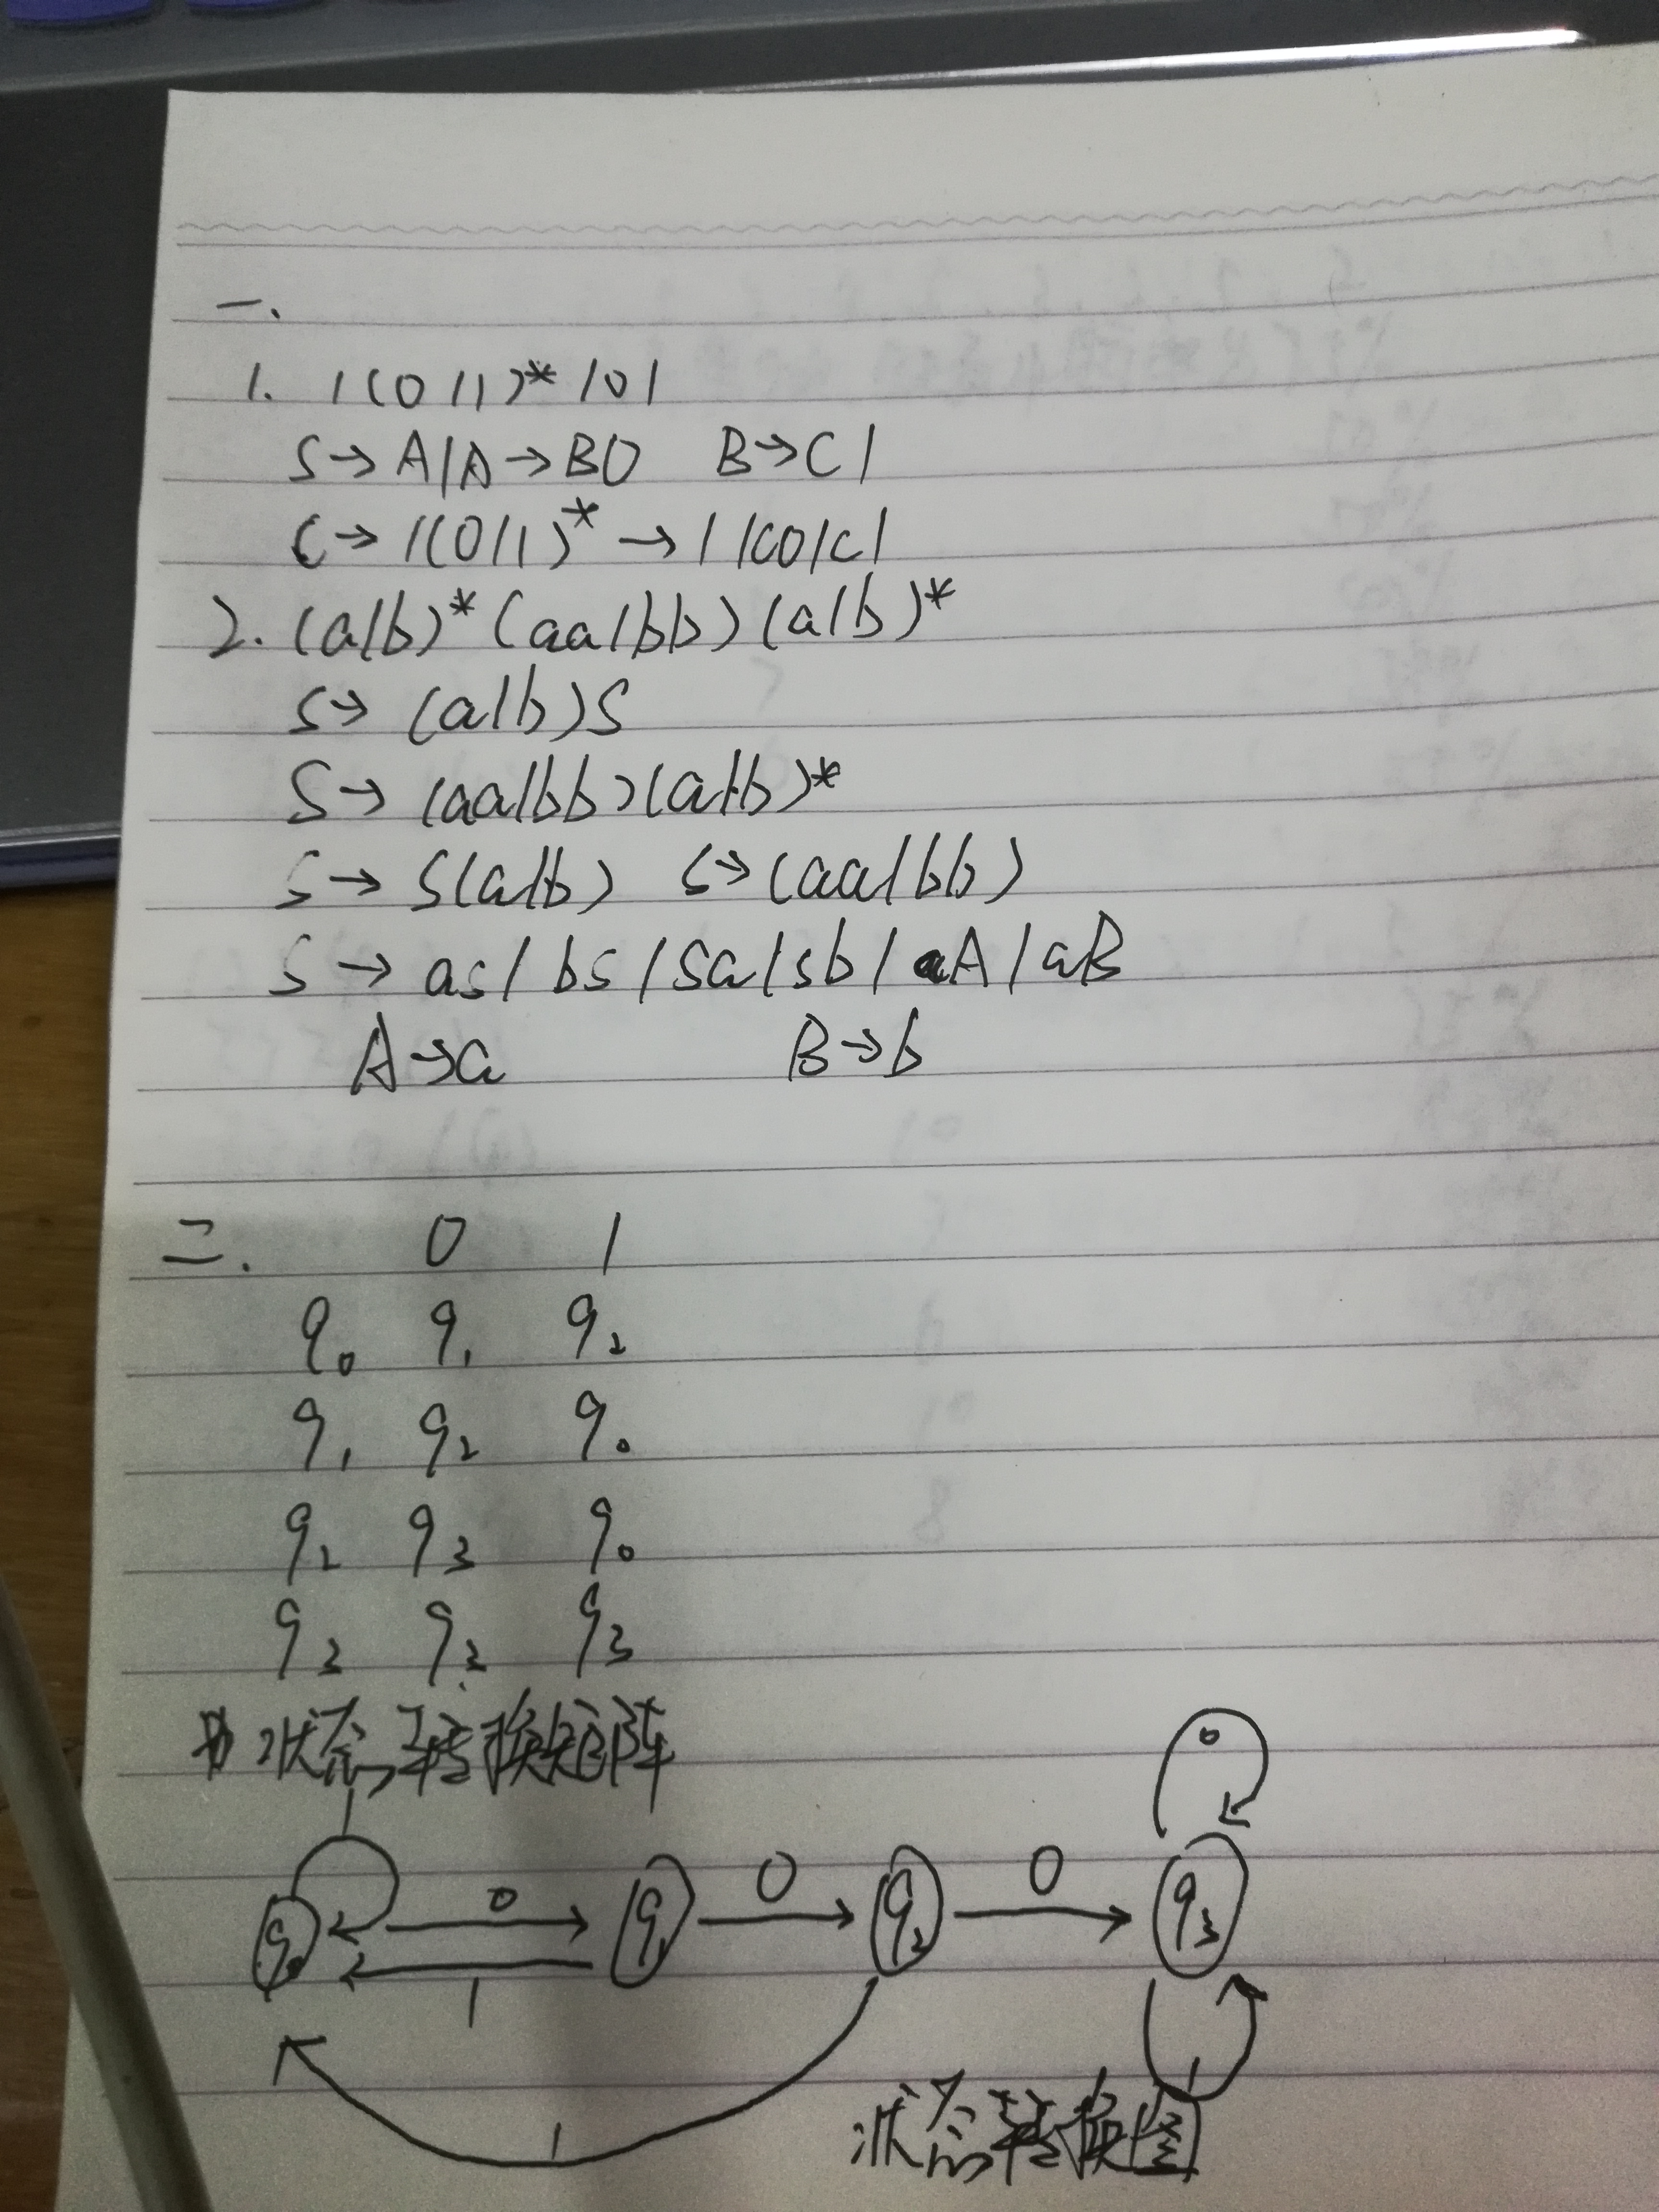 一.
1. 1(0|1)*101
S→A1A→B0 B→C1
C→1(0|1)*→1|C0|C1
2. (a|b)*(aa|bb)(a|b)*
S→(a|b)S
S→(aa|bb)(a|b)*
S→S(a|b) S→(aa|bb)
S→aS|bS|Sa|Sb|aA|aB
A→a B→b
二. 0 1
q₀ q₁ q₂
q₁ q₂ q₀
q₂ q₃ q₀
q₃ q₃ q₃
状态转换矩阵
1 0
q₀ 0 q₁ 0 q₂ 0 q₃
1
1 1
状态转换图